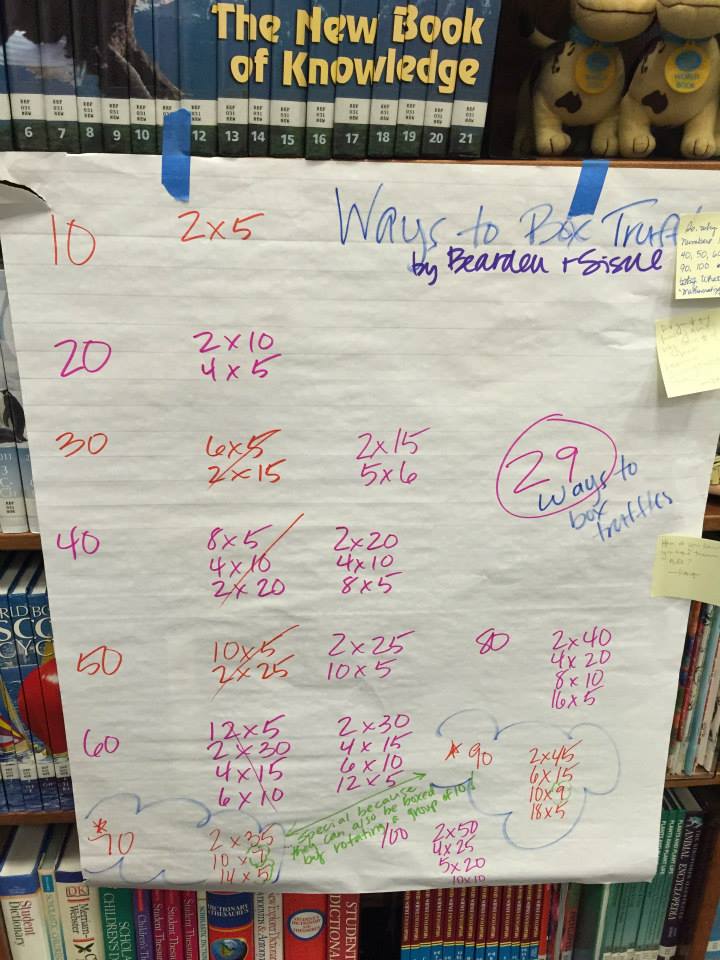 The New Book
of Knowledge
REF
031
NEW
6 7 8 9 10 12 13 14 15 16 17 18 19 20 21
WORLD BOOK
Ways to Box
by Bearden + Sisue
10
2x5
20
2x10
4x5
30
6x5
2x15
2x15
5x6
29
Ways to
box
truffles
40
8x5
4x10
2x20
2x20
4x10
8x5
50
10x5
2x25
2x25
10x5
60
12x5
2x30
4x15
6x10
2x30
4x15
6x10
12x5
*70
2x35
10x7
14x5
Special because
they can also be boxed
by rotating a group of 10!
80
2x40
4x20
8x10
16x5
*90
2x45
6x15
10x9
18x5
100
2x50
4x25
5x20
10x10
So, why
numbers
40, 50, 60
90, 100
Student
Dictionary
DK
Merriam-
Webster
Children's
Student Thesaurus
DICTIONARY
THESAURUS
STUDENT
DICTIONARY
ANIMAL ENCYCLOPEDIA